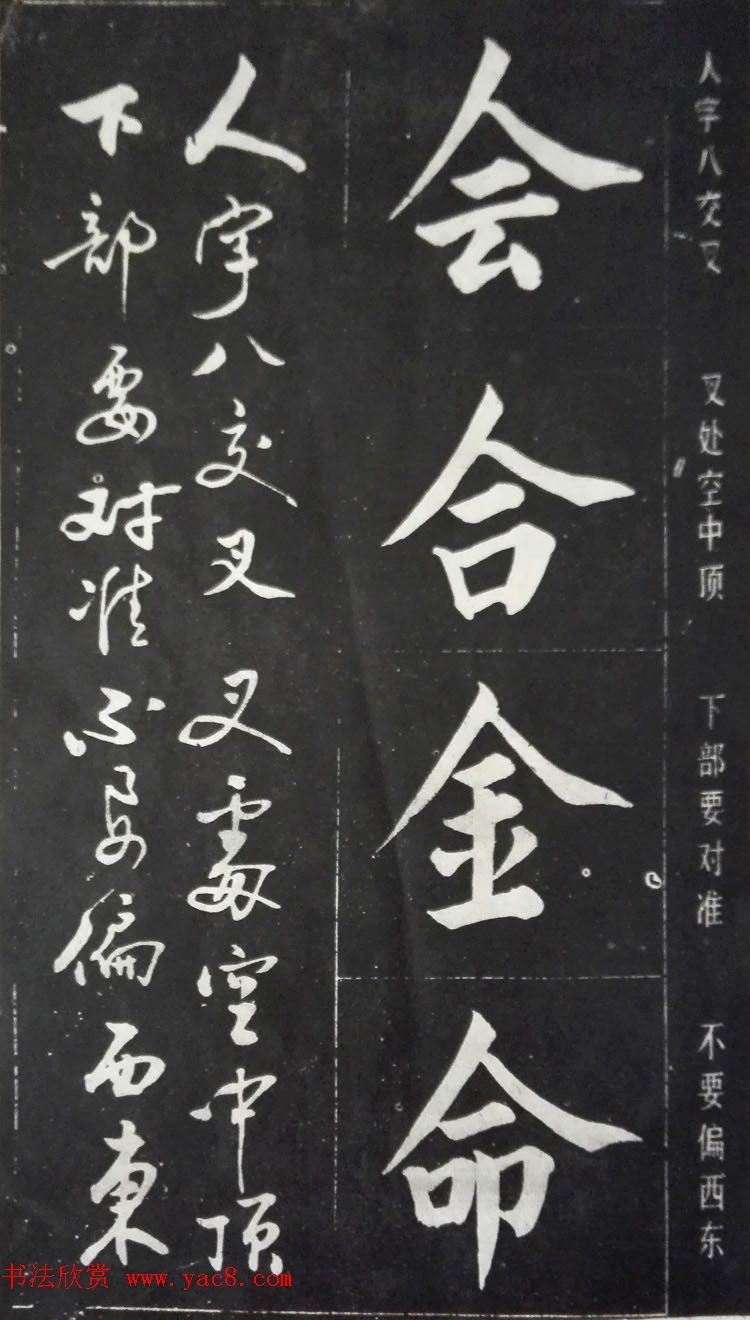 人字八交叉　叉处空中顶　下部要对准　不要偏西东
会合金命
人字八交叉叉處空中顶
下部要对准不要偏西東
书法欣赏 www.yac8.com